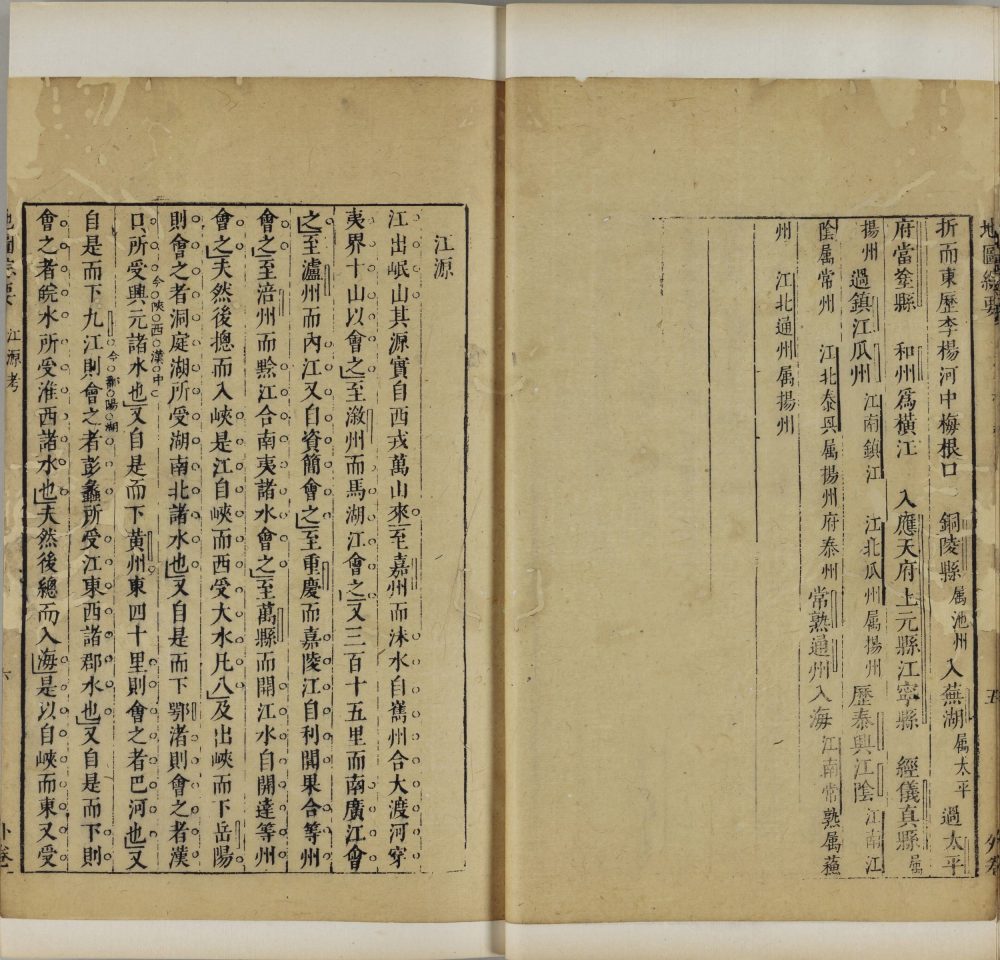 折而東歷李楊河中梅根口 銅陵縣屬池州 入蕪湖屬太平 過太平
府當塗縣 和州爲橫江 入應天府上元縣江寧縣 經儀真縣屬
揚州 過鎮江瓜州 江南鎮江 江北瓜州屬揚州 歷泰興江陰江南江
陰属常州 江北泰興属揚州府泰州 常熟通州入海江南常熟属蘇
州 江北通州属揚州
五
外卷
江源
江出岷山其源實自西戎萬山來至嘉州而沫水自嶲州合大渡河穿
夷界十山以會之至漵州而馬湖江會之又三百十五里而南廣江會
之至瀘州而內江又自資簡會之至重慶而嘉陵江自利閬果合等州
會之至涪州而黔江合南夷諸水會之至萬縣而開江水自開達等州
會之夫然後摠而入峽是江自峽而西受大水凡八及出峽而下岳陽
則會之者洞庭湖所受湖南北諸水也又自是而下鄂渚則會之者漢
口所受興元諸水也今陝西漢中又自是而下黄州東四十里則會之者巴河也又
自是而下九江則會之者今鄱陽湖彭蠡所受江東西諸郡水也又自是而下則
會之者皖水所受淮西諸水也夫然後總而入海是以自峽而東又受
江源考
六
外卷